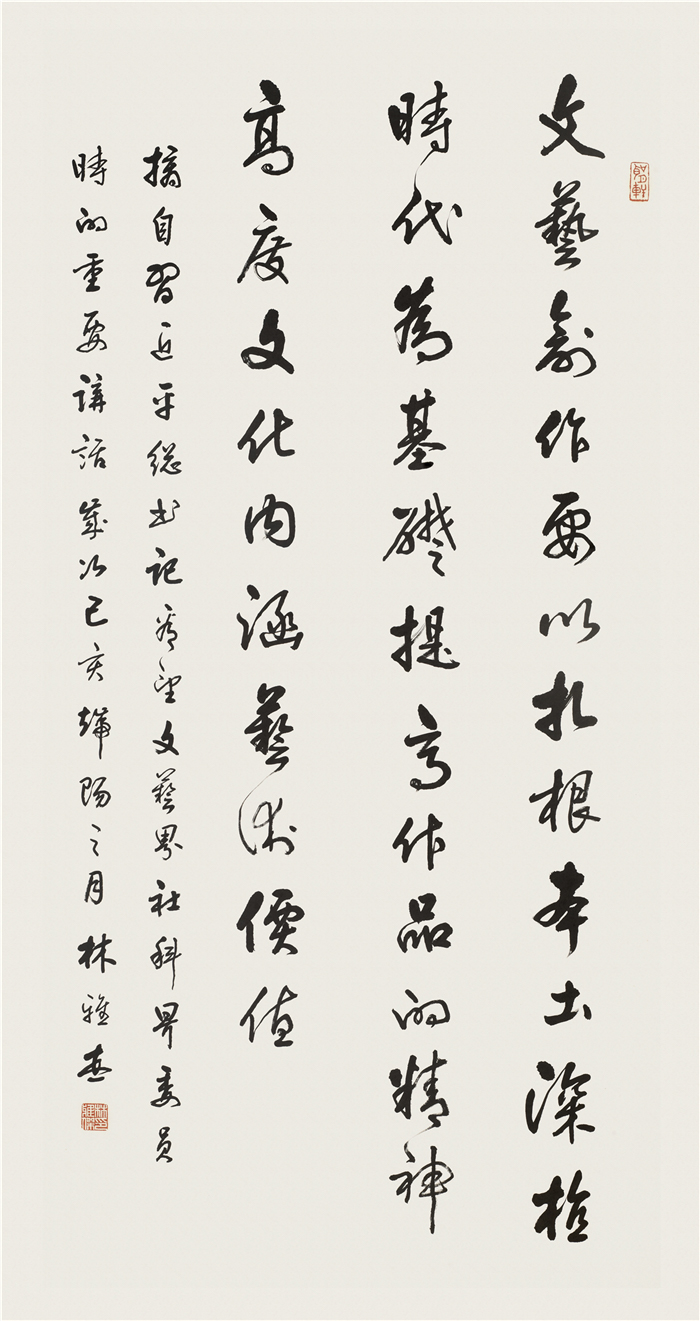 文藝創作要以扎根本土深植
時代為基礎提高作品的精神
高度文化内涵藝術價值
摘自習近平總书記看望文藝界社科界委員
時的重要講話歲次己亥端陽之月林雅杰